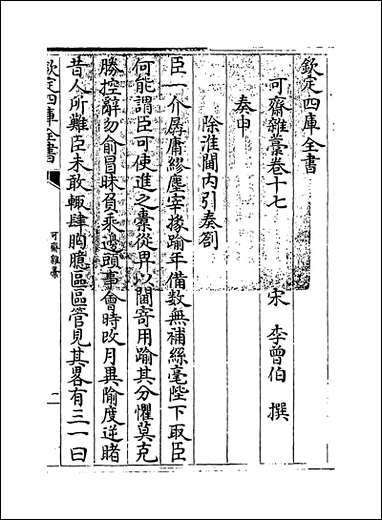 欽定四庫全書
可齋雜藁卷十七
宋 李曾伯 撰
奏申
除淮閫內引奏劄
臣一介孱庸繆塵宰掾踰年備數無補絲毫陛下取臣
何能謂臣可使進之橐從畀以閫寄用踰其分懼莫克
勝控辭勿俞冒昧負乘邊頭事會時改月異隃度逆睹
昔人所難臣未敢輒肆胸臆區區管見其畧有三一曰
欽定四庫全書
可齋雜藁
一